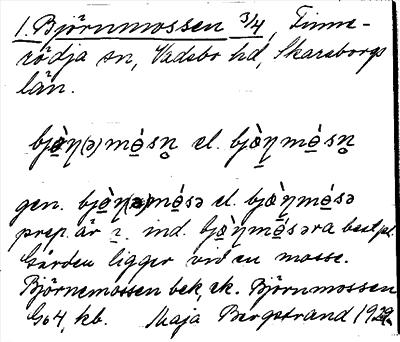 1. Björnmossen 3/4, Finne-
rödja sn, Vadsbo hd, Skaraborgs
län.
bjǫ̀η(ə)mǫ́sn̥ el. bjæ̀η̣mǫ́sn̥
gen. bjǫ̀η(ə)mǫ́sə el. bjæ̀η̣mǫ́sə
prep. är i. ind. bjæ̀η̣mǫ́səra best pl.
Gården ligger vid en mosse.
Björnemossen bek, ek. Björnmossen
Gs4, kb. Maja Bergstrand 1929.